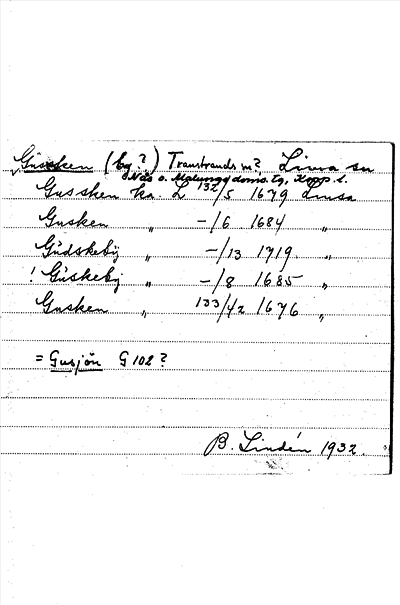 Gussken (by?) Transtrands sn? Lima sn
Näs o. Malungs domsg. tg, Kopp. l.
Gussken ha. L 132/5 1679 Limsa
Gusken " -/6 1684 "
Gúdskebÿ " -/13 1719 "
! Gúskebÿ " -/8 1685 "
Gusken " 133/42 1676 "
= Gusjön G 102?
B. Lindén 1932.